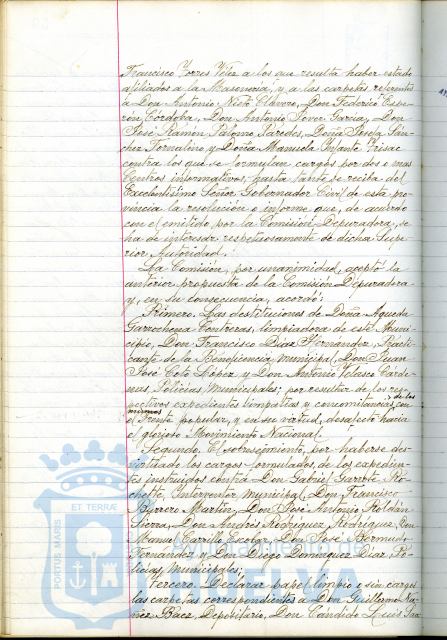 Francisco Torres Vélez a los que resulta haber estado
afiliados a la Masonería, y a las carpetas referentes
a Don Antonio Nieto Clavero, Don Federico
Córdoba, Don Antonio Jover García, Don
José Ramón Palomo Paredes, Doña
y Doña Manuela Infante
contra los que se formulan cargos por dos o mas
Centros informativos; hasta tanto se reciba del
Excelentísimo Señor Gobernador Civil de esta pro-
vincia la resolución o informe que, de acuerdo
con el emitido por la Comisión Depuradora, se
ha de interesar respetuosamente de dicha Supe-
rior Autoridad.
La Comisión, por unanimidad, aceptó la
anterior propuesta de la Comisión Depuradora
y, en su consecuencia, acordó:
Primero. Las destituciones de Doña Agueda
Garrochena Contreras, limpiadora de este Muni-
cipio, Don Francisco Diaz Fernández, Practi-
cante de la Beneficencia municipal, Don Juan
José Coto López y Don Antonio Velasco Carde-
nas, Policías Municipales; por resultar de los res-
pectivos expedientes simpatías y concomitancias de los
mismos con
el Frente popular, y en su virtud, desafecto hacia
el glorioso Movimiento Nacional.
Segundo. El sobreseimiento, por haberse des-
virtuado los cargos formulados de los expedien-
tes instruidos contra Don Gabriel Garrote Ro-
chette, Interventor municipal, Don Francisco
Borrero Martín, Don José Antonio Roldán
Sierra, Don Andrés Rodríguez Rodríguez, Don
Manuel Carrillo Escobar, Don José Bermudo
Fernández y Don Diego Dominguez Díaz, Po-
licías Municipales;
Tercero. Declarar papel limpio o sin cargos
las carpetas correspondientes a Don Guillermo
Baez, Depositario, Don Cándido Luis
PORTUS MARIS
ET TERRÆ